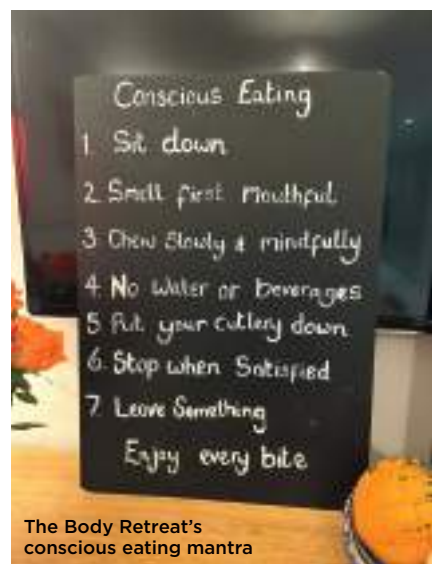 Conscious Eating
1 Sit down
2 Small first Mouthful
3 Chew Slowly & mindfully
4 No Water or beverages
5 Put your cutlery down
6. Stop when Satisfied
7 Leave Something
Enjoy every bite
The Body Retreat's
conscious eating mantra